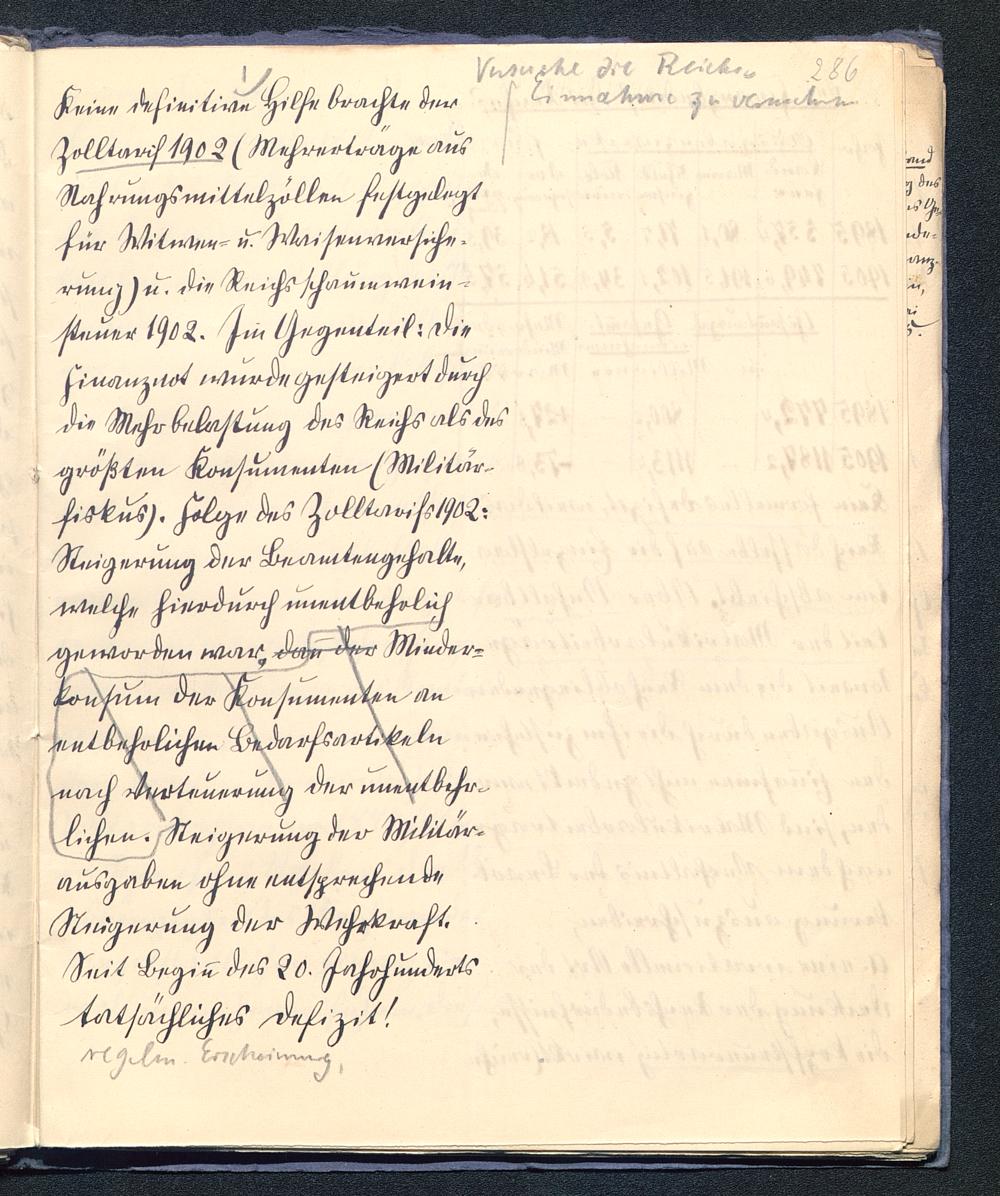 Versuche die Reichs- 286
Einnahmen zu vermehren
Keine definitive Hilfe brachte der
Zolltarif 1902 (Mehrerträge aus
Nahrungsmittelzöllen festgelegt
für Witwen- u. Waisenversiche-
rung) u. die Reichsschaumwein-
steuer 1902. Im Gegenteil: Die
Finanznot wurde gesteigert durch
die Mehrbelastung des Reichs als des
größten Konsumenten (Militär-
fiskus). Folge des Zolltarifs 1902:
Steigerung der Beamtengehalte,
welche hierdurch unentbehrlich
geworden war, dan̄ der Minder-
konsum der Konsumenten an
entbehrlichen Bedarfsartikeln
nach Verteuerung der unentbehr-
lichen. Steigerung der Militär-
ausgaben ohne entsprechende
Steigerung der Wehrkraft.
Seit Begin̄ des 20. Jahrhunderts
tatsächliches Defizit!
regelm. Erscheinung,